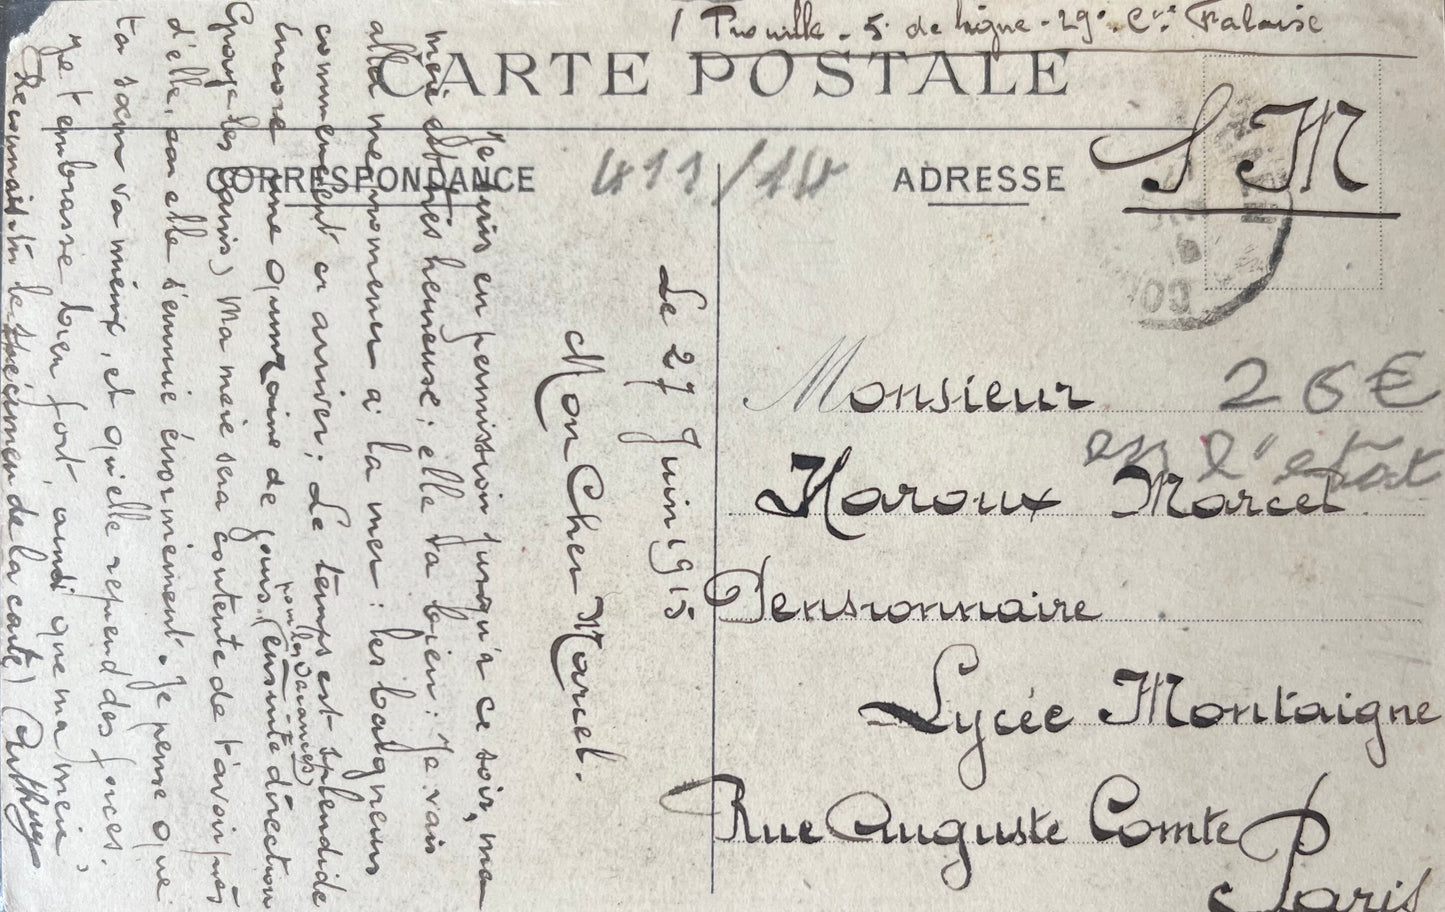 Trouville - 5e de ligne - 29e Cie Falaise
CARTE POSTALE
CORRESPONDANCE
411/14
ADRESSE
S M
26€
en l'état
Monsieur
Haroux Marcel
Pensionnaire
Lycée Montaigne
Rue Auguste Comte
Paris
Le 27 Juin 1915
Mon Cher Marcel.
Je suis en permission jusqu'à ce soir, ma
mère est très heureuse ; elle va bien : Je vais
aller me promener à la mer : les baigneurs
commencent à arriver ; Le temps est splendide
Encore une quinzaine de jours, (ensuite direction
pour les vacances)
les Bains) Ma mère sera contente de t'avoir près
d'elle, car elle s'ennuie énormément. Je pense que
ta sœur va mieux, et qu'elle reprend des forces.
Je t'embrasse bien fort, ainsi que ma mère,
Reconnais-tu le spécimen de la carte)